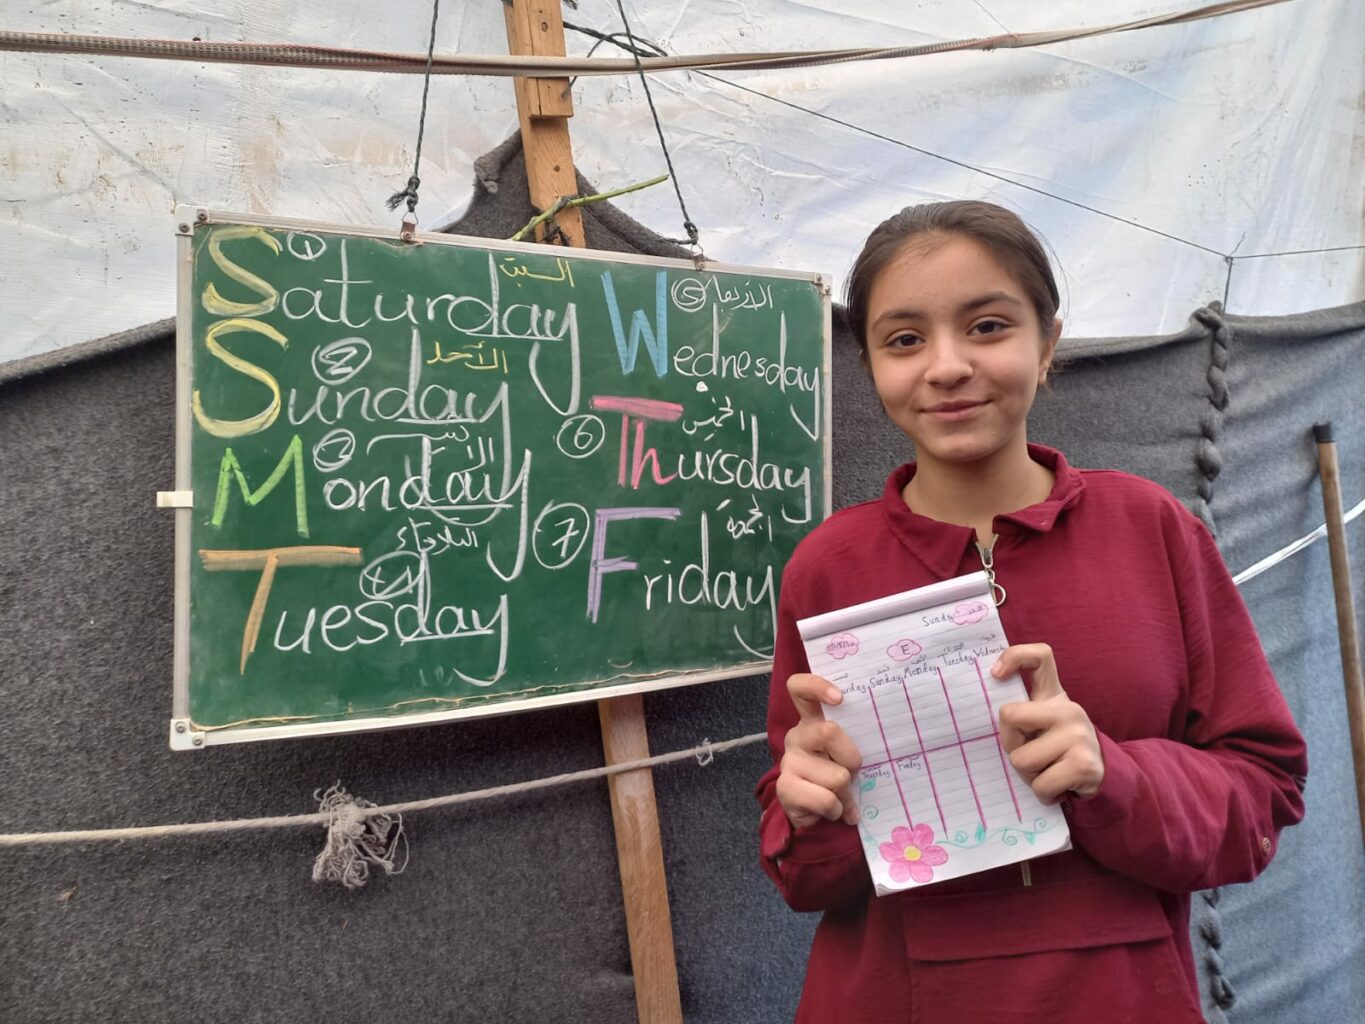 1
Saturday السبت
2 الأحد
Sunday
الاثنين
Monday
الثلاثاء
Tuesday
5 الأربعاء
Wednesday
6 الخميس
Thursday
7 الجمعة
Friday
Sunday
E
Sunday Monday Tuesday
Thursday Friday